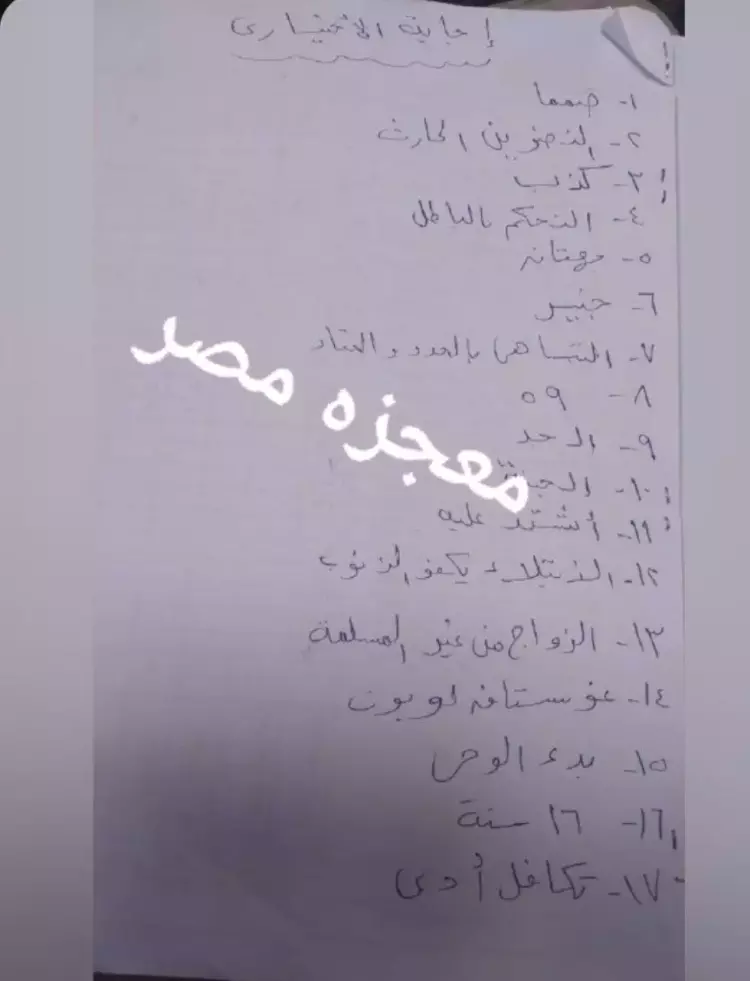 إجابة الاختيارى
١- ضمما
٢- النضر بن الحارث
٣- كذب
٤- التحكم بالباطل
٥- مهتانه
٦- جنيير
٧- التباهى بالعدد والعتاد
٨- ٥٩
٩- الحد
١٠-
١١- أشتد عليه
١٢- الابتلاء يكفر الذنوب
١٣- الزواج من غير المسلمة
١٤- غوستاف لوبون
١٥- بدء الوحى
١٦- ١٦ سنة
١٧- تكافل أدى
معجزه مصر